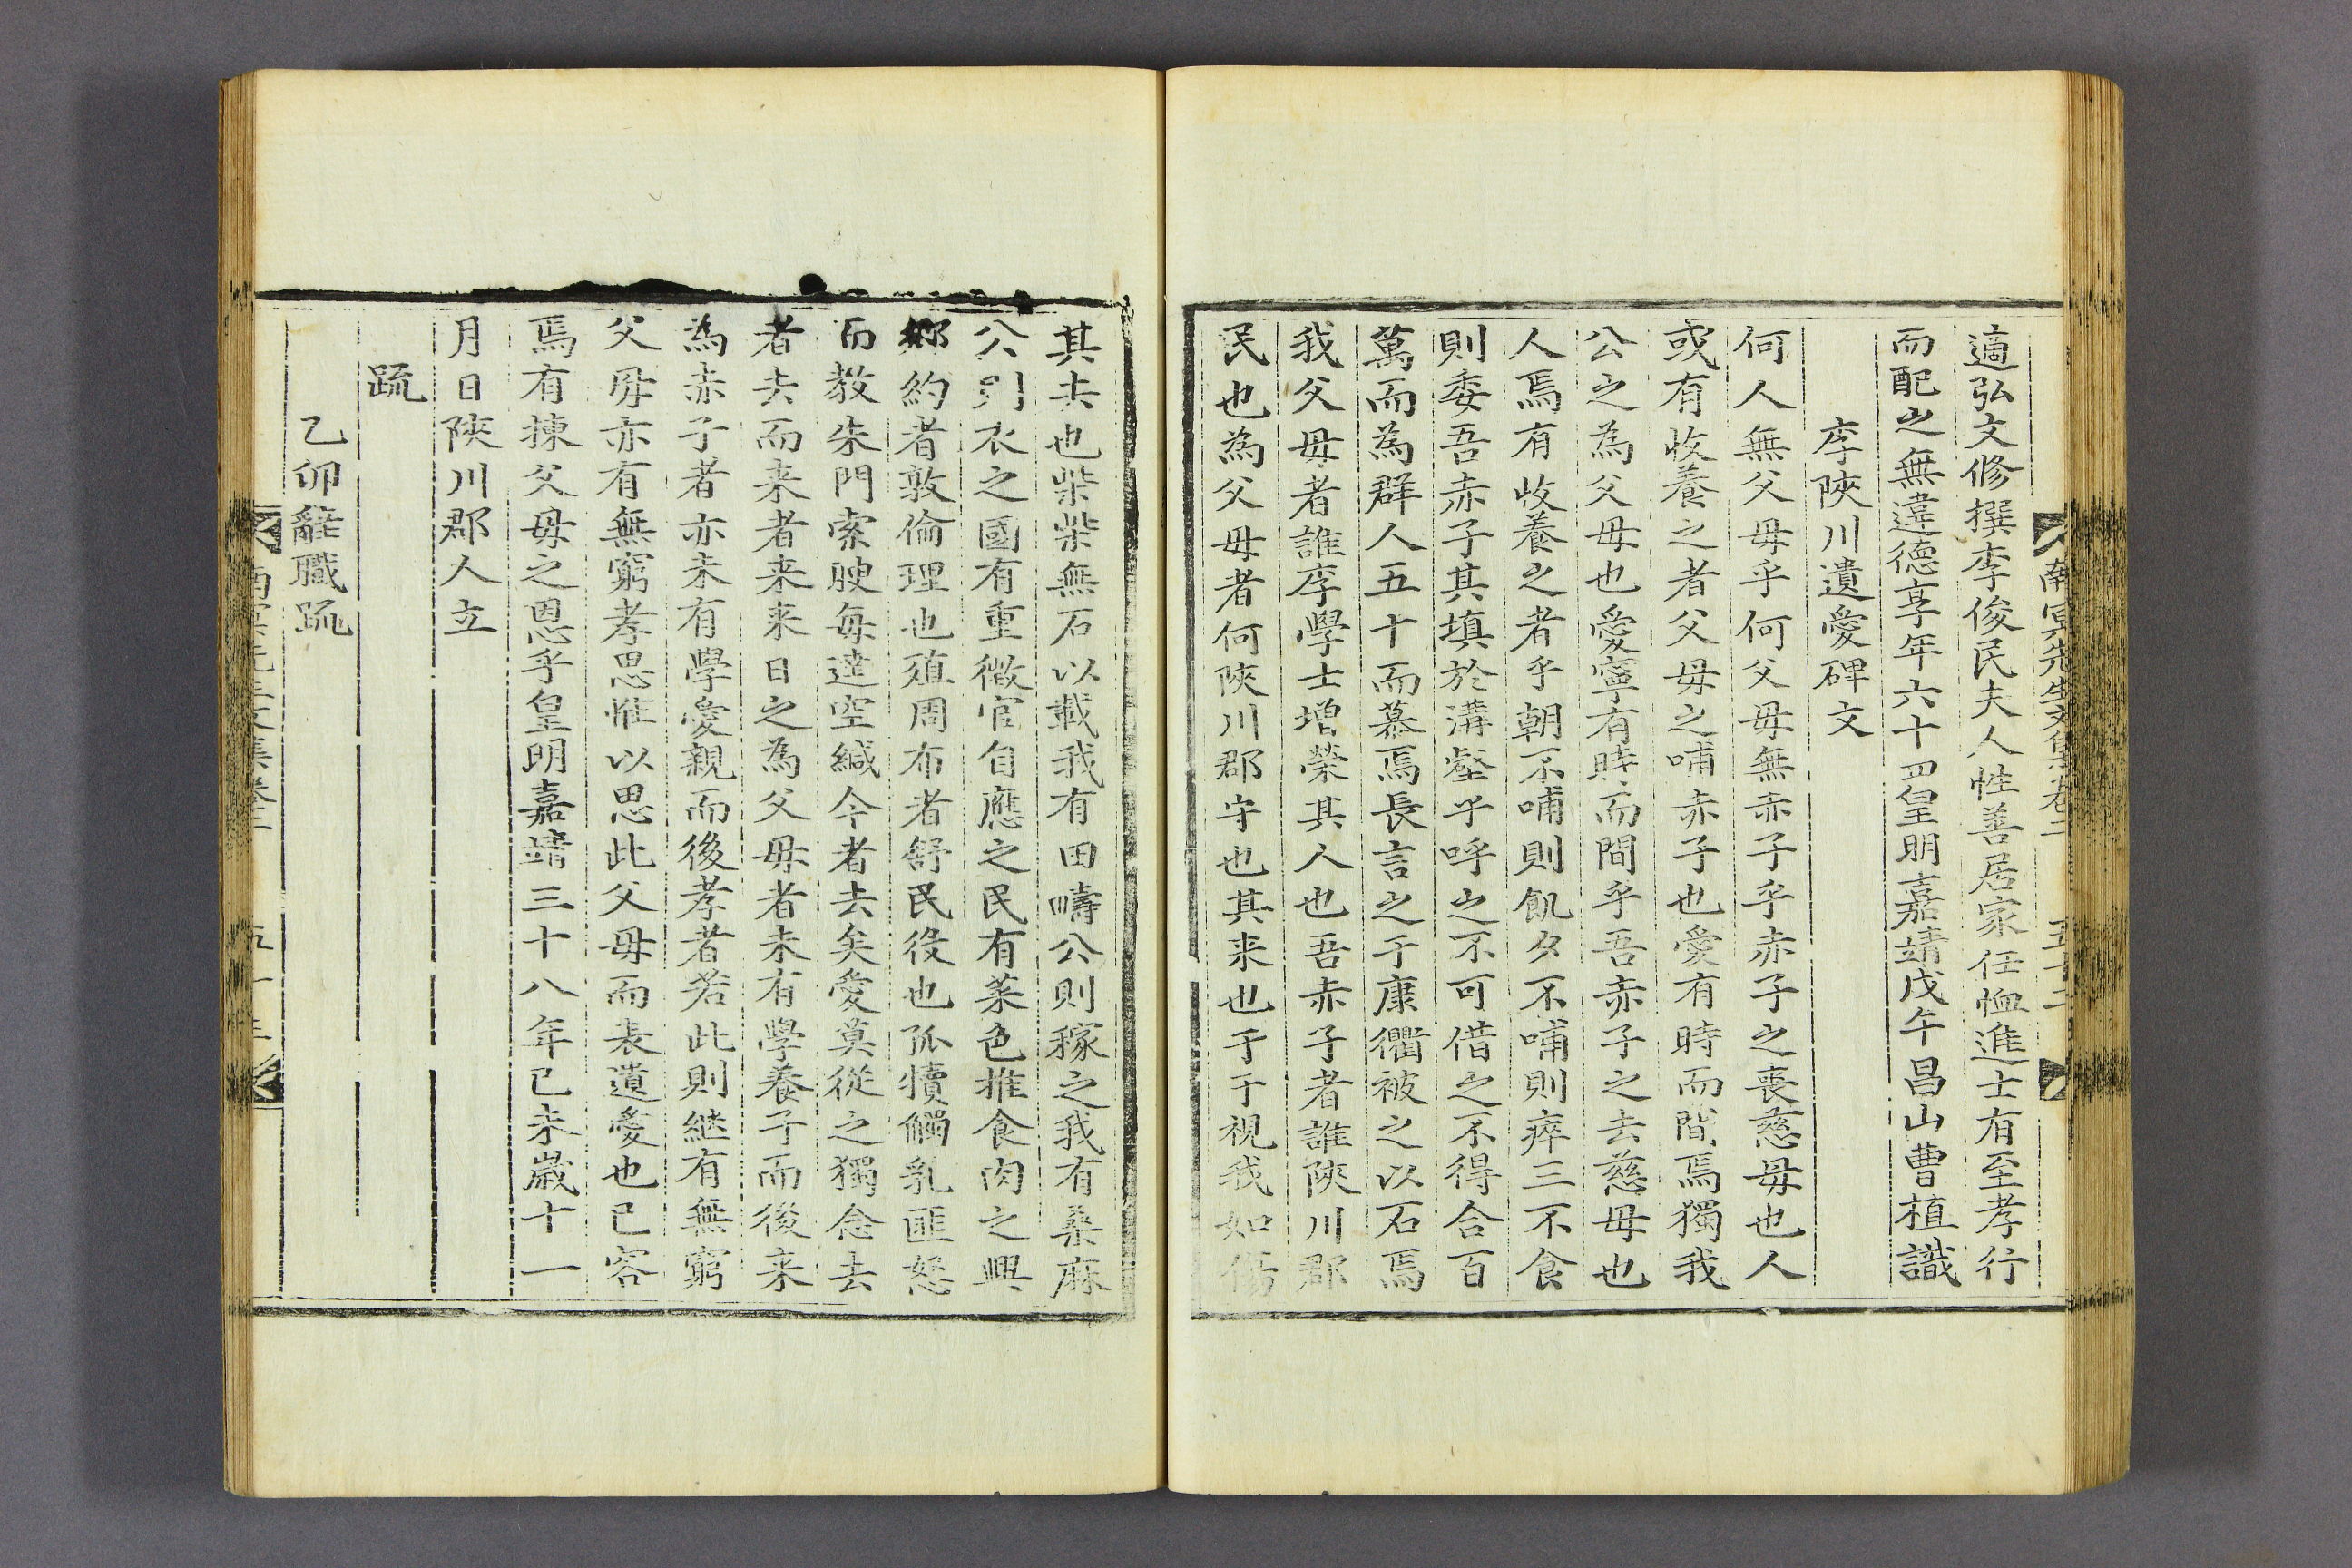 南冥先生文集卷二 五十二
適弘文修撰李俊民夫人性善居家任恤進士有至孝行
而配之無違德享年六十四皇明嘉靖戊午昌山曹植識
李陜川遺愛碑文
何人無父母乎何父母無赤子乎赤子之喪慈母也人
或有收養之者父母之哺赤子也愛有時而間焉獨我
公之為父母也愛寧有時而間乎吾赤子之去慈母也
人焉有收養之者乎朝不哺則飢夕不哺則瘁三不食
則委吾赤子其填於溝壑乎呼之不可借之不得合百
萬而為群人五十而慕焉長言之于康衢被之以石焉
我父母者誰李學士增榮其人也吾赤子者誰陜川郡
民也為父母者何陜川郡守也其来也于于視我如傷
其去也柴柴無石以載我有田疇公則稼之我有桑麻
公則衣之國有重徵官自應之民有菜色推食肉之興
鄉約者敦倫理也殖周布者舒民役也孤犢觸乳匪怒
而教朱門索腴每達空緘今者去矣愛莫從之獨念去
者去而来者来来日之為父母者未有學養子而後来
為赤子者亦未有學愛親而後孝者若此則継有無窮
父母亦有無窮孝思惟以思此父母而表遺愛也已客
焉有揀父母之恩乎皇明嘉靖三十八年己未歲十一
月日陜川郡人立
疏
乙卯辭職疏
南冥先生文集卷二